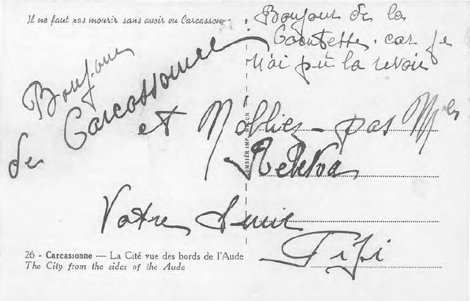 Il ne faut pas mourir sans avoir vu Carcassonne
Bonjour de la
car je
n'ai pu la revoir
Bonjour
de Carcassonne
et N'oubliez - pas
Votre Amie
Fifi
26 - Carcassonne — La Cité vue des bords de l'Aude
The City from the sides of the Aude